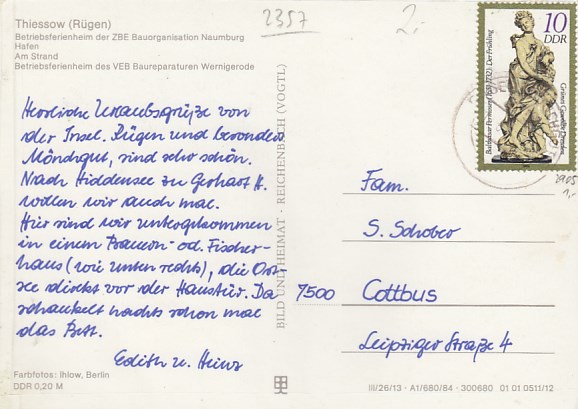 Thiessow (Rügen)
Betriebsferienheim der ZBE Bauorganisation Naumburg
Hafen
Am Strand
Betriebsferienheim des VEB Baureparaturen Wernigerode
2357
2,-
10
DDR
Balthasar Permoser (1651-1732): Der Frühling
Grünes Gewölbe Dresden
2905
1,-
Herrliche Urlaubsgrüße von
der Insel. Rügen und besonders
Mönchgut, sind sehr schön.
Nach Hiddensee zu Gerhart H.
wollen wir auch mal.
Hier sind wir untergekommen
in einem Bauern- od. Fischer-
haus (wie unten rechts), die Ost-
see direkt vor der Haustür. Da
schaukelt nachts schon mal
das Bett.
Edith u. Heinz
BILD UND HEIMAT · REICHENBACH (VOGTL)
Fam.
S. Schober
7500 Cottbus
Leipziger Straße 4
Farbfotos: Ihlow, Berlin
DDR 0,20 M
III/26/13 · A1/680/84 · 300680 01 01 0511/12